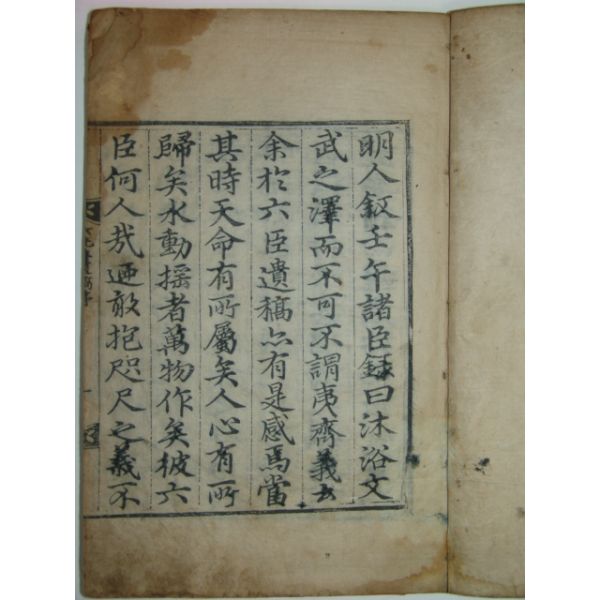 明人敍壬午諸臣録曰沐浴文
武之澤而不可不謂夷齊義士
余扵六臣遺稿亦有是感焉當
其時天命有所屬矣人心有所
歸矣水動揺者萬物作矣彼六
臣何人㢤迺敢抱咫尺之義不